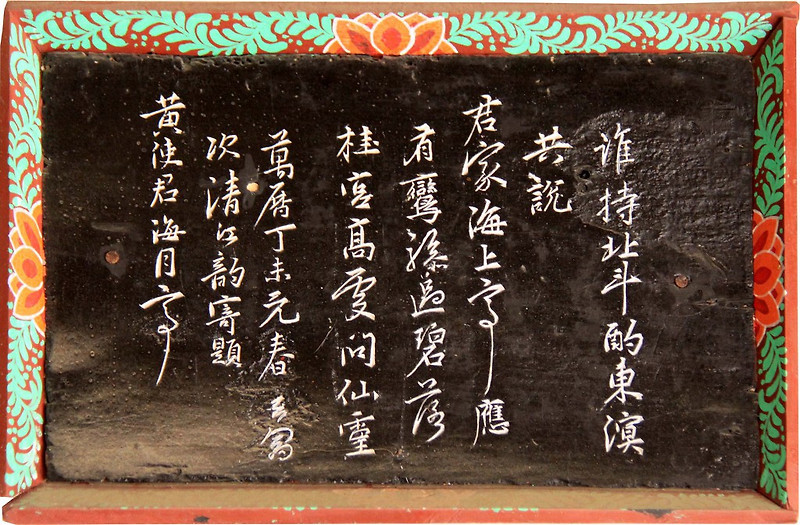 誰持北斗酌東溟
共說
君家海上亭應
有鸞驂過碧落
桂宮高處問仙靈
萬曆丁未元春
次清江韵寄題
黃使君海月亭